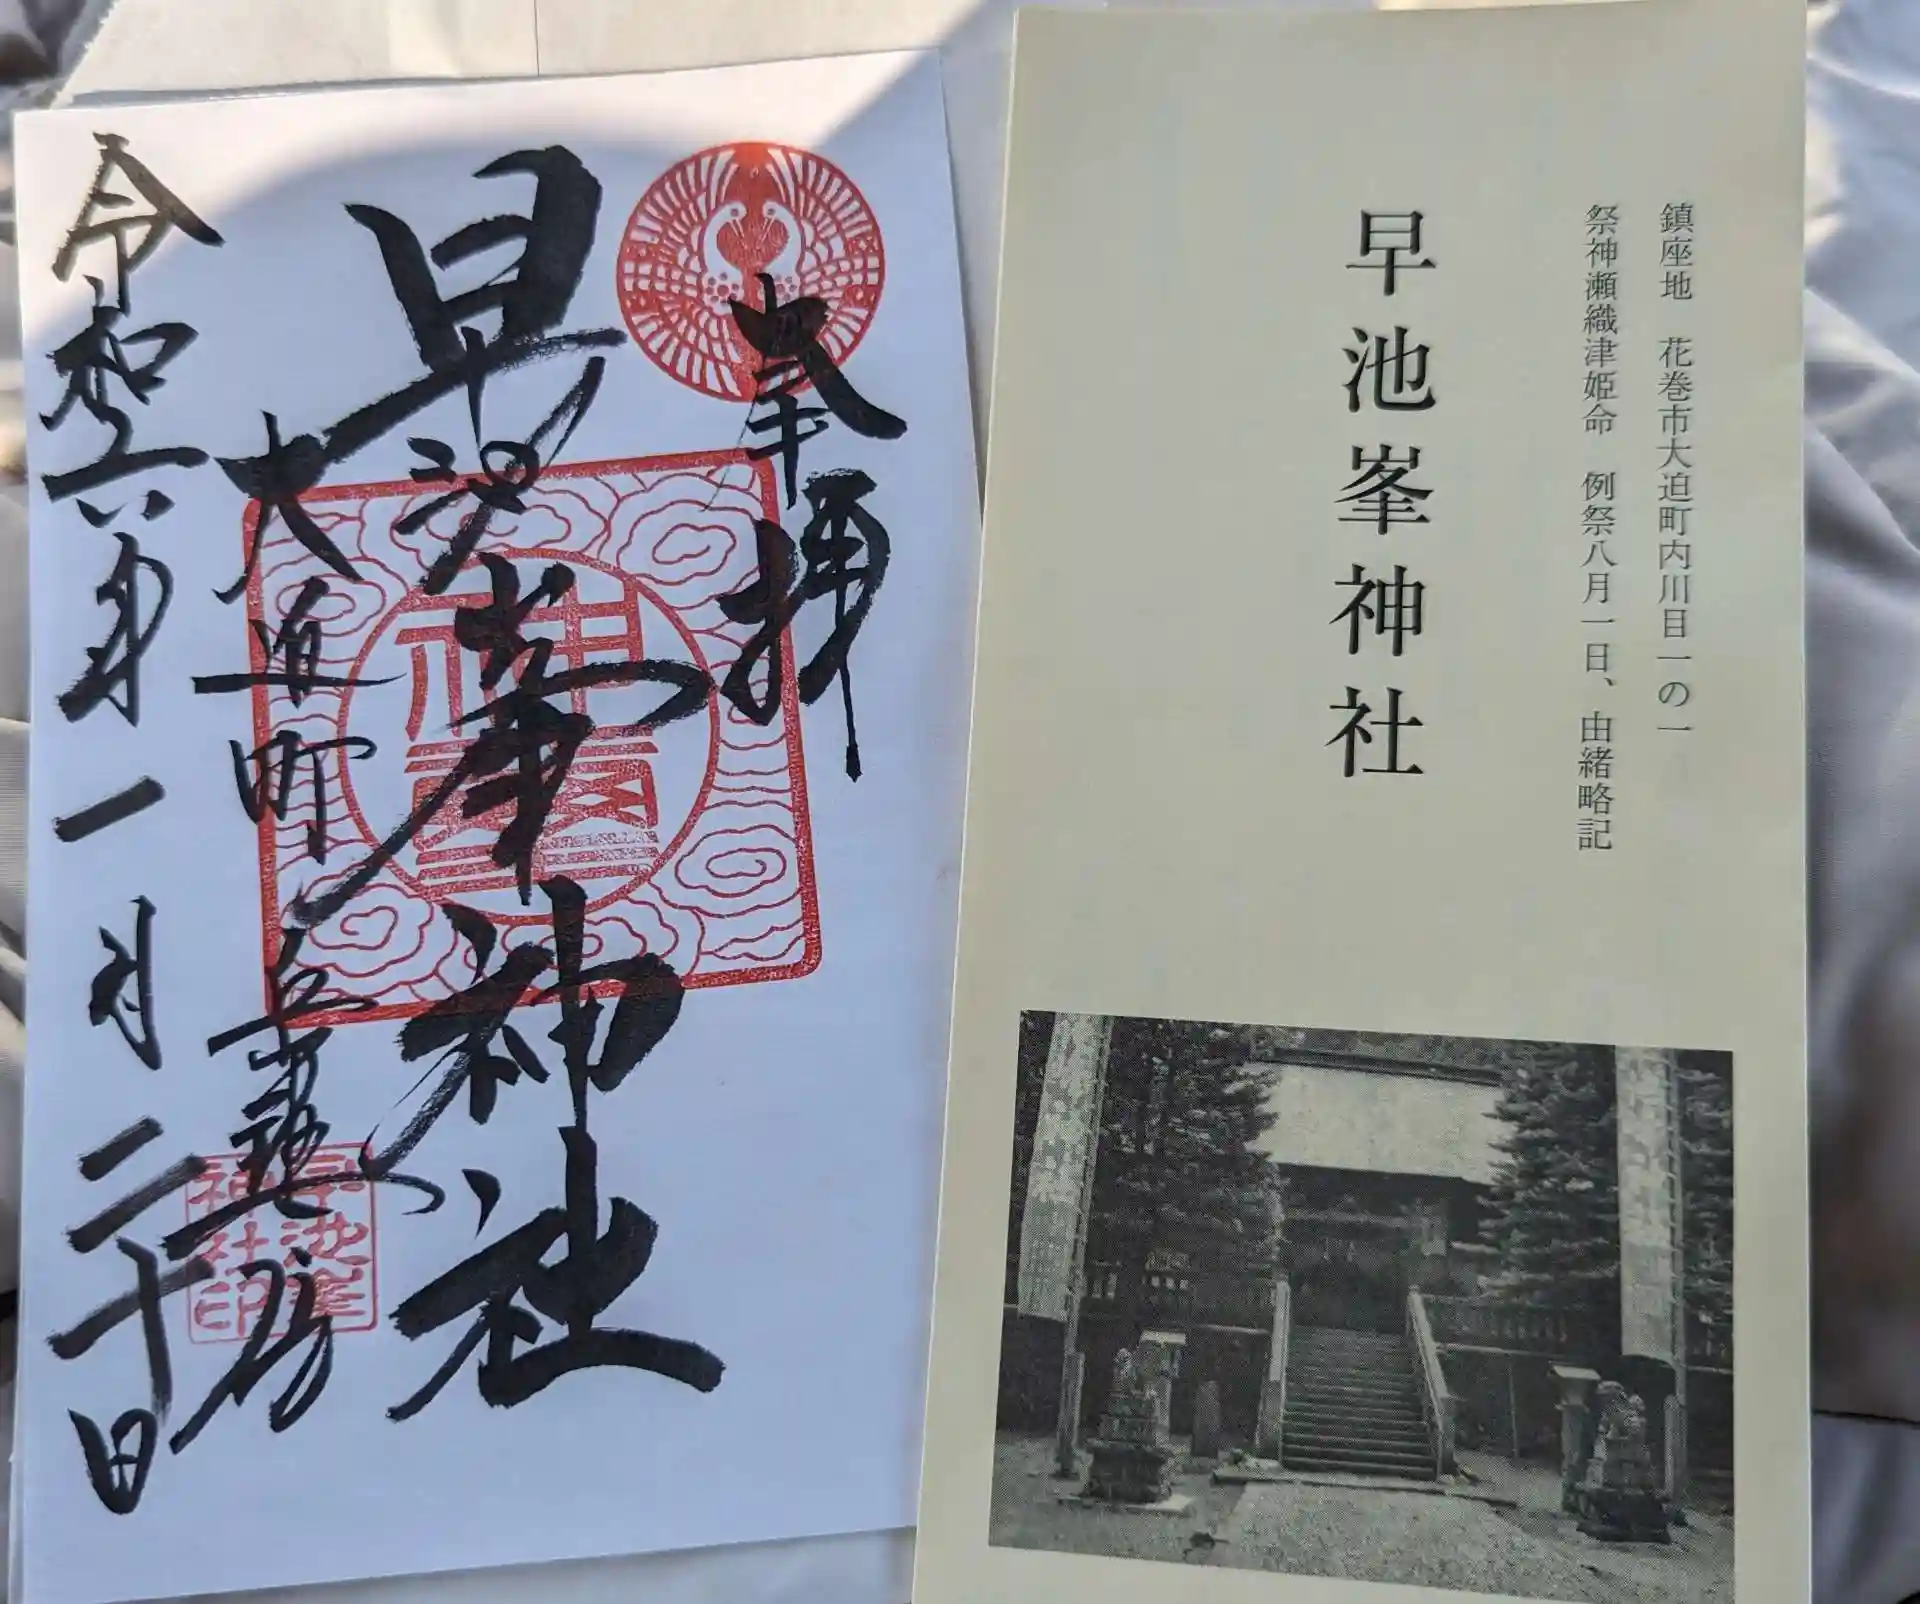 奉拝
早池峯神社
大迫町
令和六年一月二十日
早池峯
神社印
鎮座地 花巻市大迫町内川目一の一
祭神瀬織津姫命 例祭八月一日、由緒略記
早池峯神社